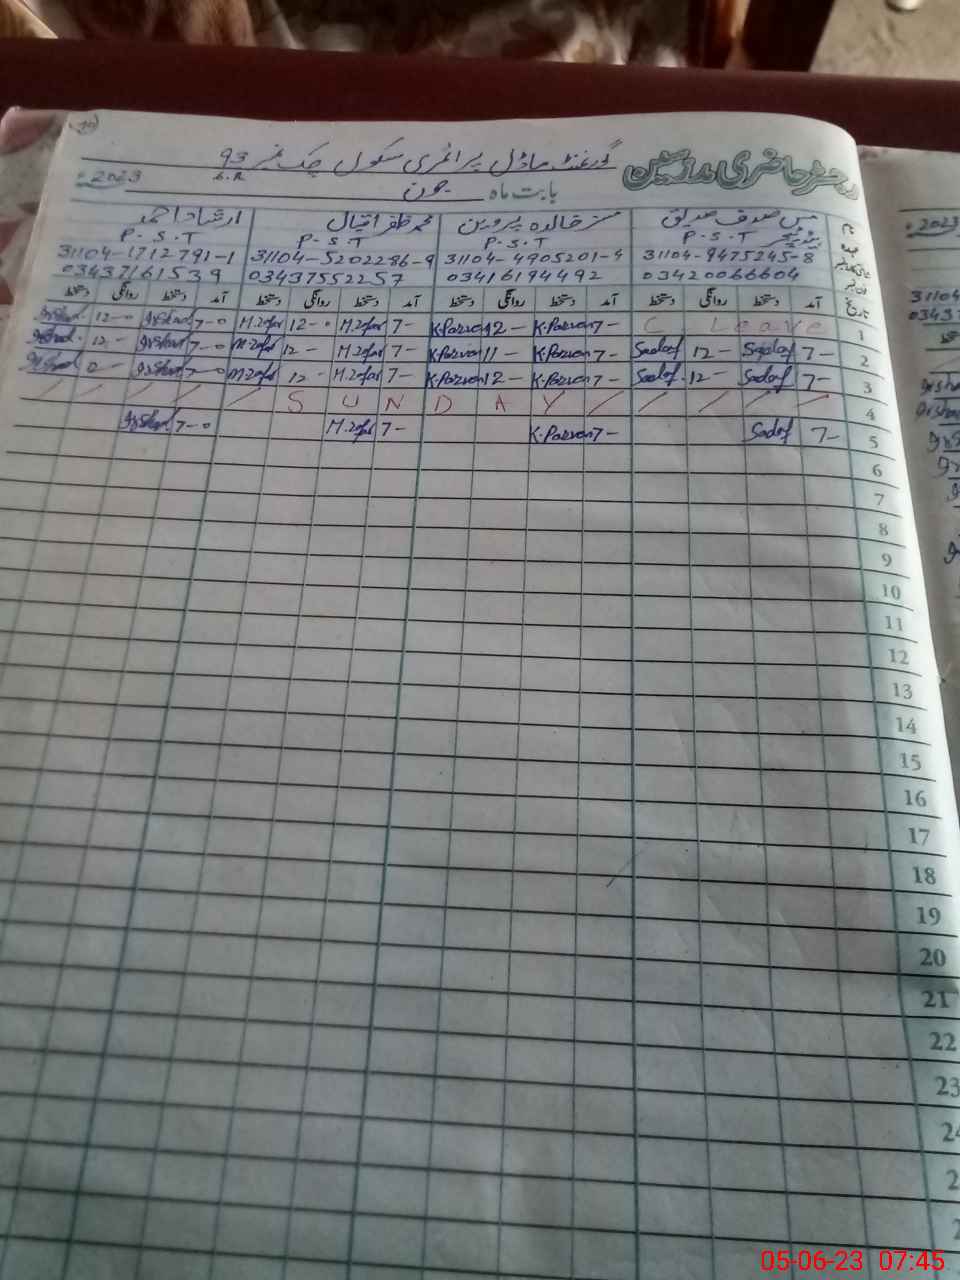 رجسٹر حاضری مدرسین
گورنمنٹ ماڈل پرائمری سکول چک نمبر 93
6.R
بابت ماہ جون 2023ء
مس صدف صدیق مسز خالدہ پروین محمد ظفر اقبال ارشاد احمد
P.S.T P.S.T P.S.T
31104-9475245-8 31104-4905201-4 31104-5202286-9 31104-1712791-1
03420066604 03416194492 03437552257 03437161539
تاریخ آمد دستخط روانگی دستخط آمد دستخط روانگی دستخط آمد دستخط روانگی دستخط آمد دستخط روانگی دستخط
1 C Leave 7- K.Parven 12- K.Parven 7- M.Zafar 12-0 M.Zafar 7-0 Irshad 12-0 Irshad
2 7- Sadaf 12- Sadaf 7- K.Parven 11- K.Parven 7- M.Zafar 12- M.Zafar 7-0 Irshad 12- Irshad
3 7- Sadaf 12- Sadaf 7- K.Parven 12- K.Parven 7- M.Zafar 12- M.Zafar 7-0 Irshad Irshad
4 SUNDAY
5 7- Sadaf 7- K.Parven 7- M.Zafar 7-0 Irshad
6
7
8
9
10
11
12
13
14
15
16
17
18
19
20
21
22
23
2023ء
31104
0343
05-06-23 07:45